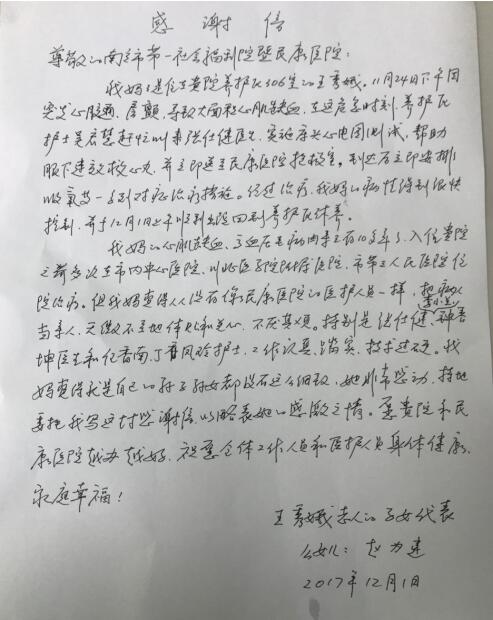 感谢信
尊敬的南京市第一社会福利院暨民康医院：
我妈妈是住贵院养护区306室的王秀娥。11月24日下午因
突发心脏病、房颤，导致大面积心肌缺血，在这危急时刻，养护区
护士吴启慧赶快叫来张仕健医生，实施床头心电图测试，帮助
服下速效救心丸，并立即送至民康医院抢救室。到达后立即安排
吸氧等一系列对症治疗措施。经过治疗，我妈的病情得到很快
控制，并于12月1日上午顺利出院回到养护区休养。
我妈的心肌缺血、高血压毛病由来已有10多年了，入住贵院
之前多次在市内中心医院、以此医院附属医院、市第三人民医院住
院治疗。但我妈觉得从没有像民康医院的医护人员一样，把病人
当亲人，无微不至地体贴和关心，不厌其烦。特别是张仕健、钟善
坤医生和护士，工作认真、踏实，技术过硬。我
妈觉得就是自己的孙子孙女都没有这么细致，她非常感动，特地
委托我写这封感谢信，以略表她的感激之情。愿贵院和民
康医院越办越好，祝愿全体工作人员和医护人员身体健康、
家庭幸福！
王秀娥老人的子女代表
女儿：赵为建
2017年12月1日